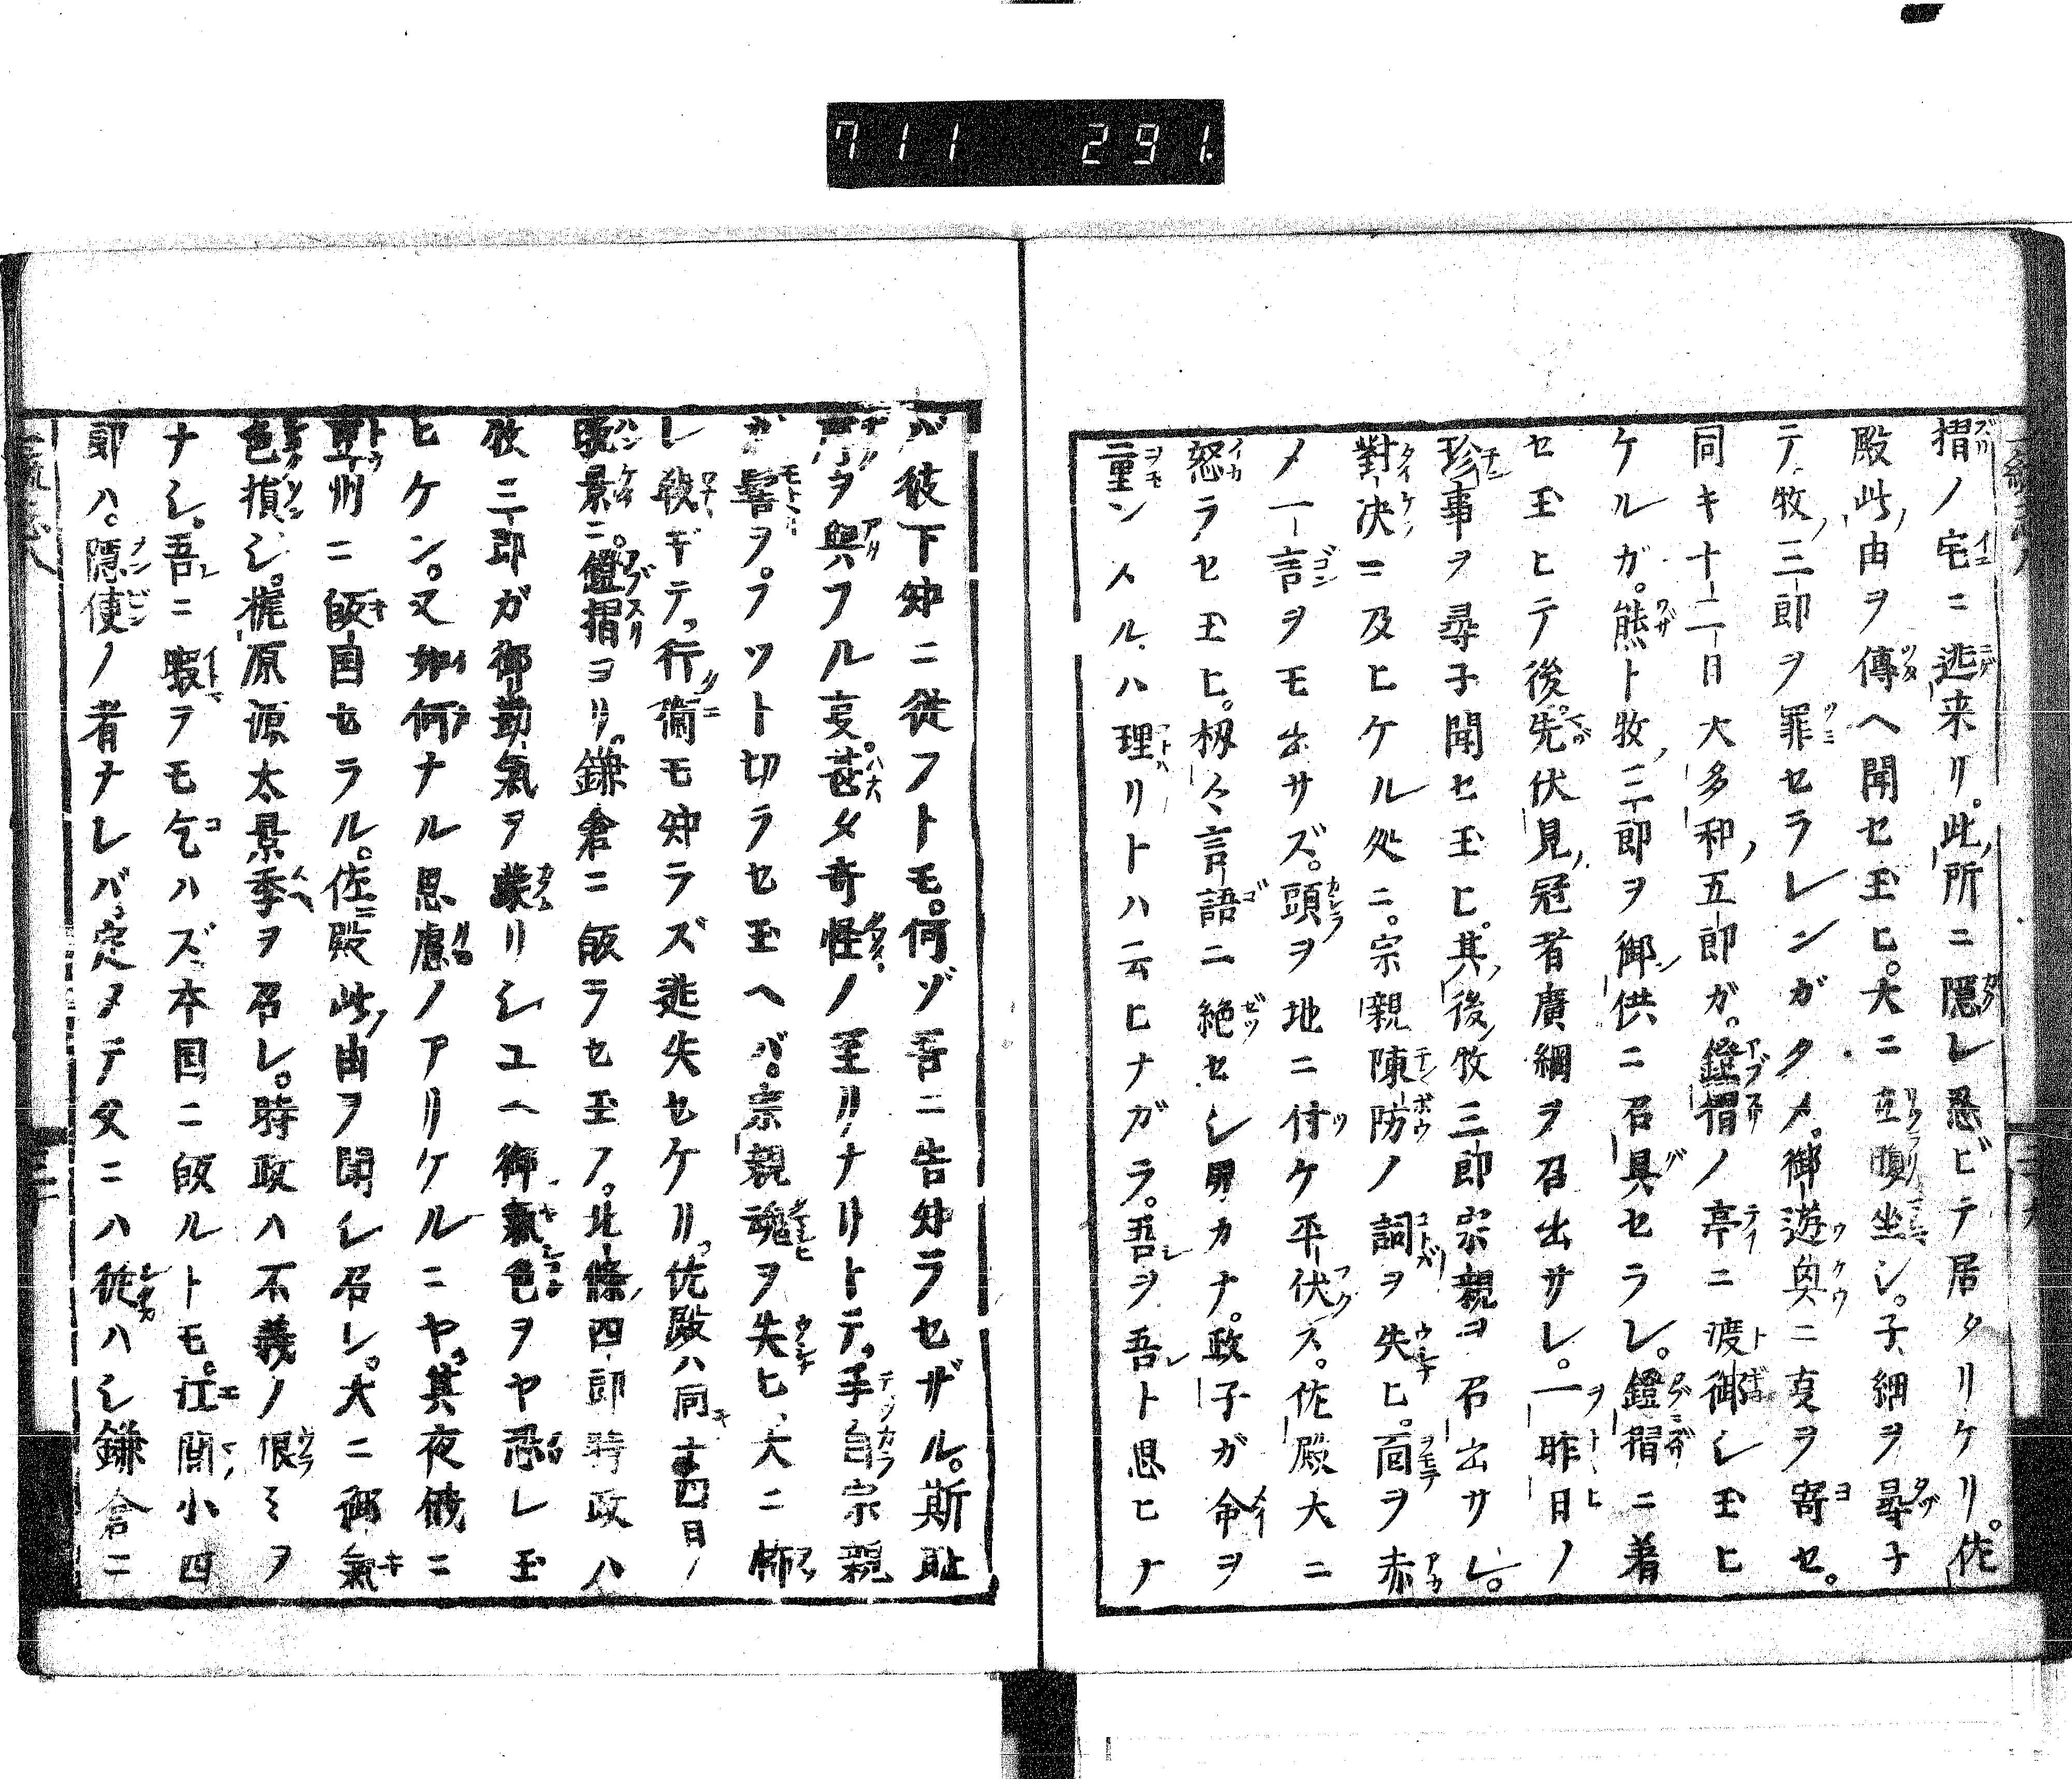 711 291.
摺ノ宅ニ逃来リ。此所ニ隠レ忍ビテ居タリケリ。佐
殿此由ヲ傳ヘ聞セ玉ヒ。大ニ立腹坐シ。子細ヲ尋子
テ。牧三郎ヲ罪セラレンガタメ。御遊興ニ事ヲ寄セ。
同キ十二日大多和五郎ガ。鐙摺ノ亭ニ渡御シ玉ヒ
ケルガ。態ト牧三郎ヲ御供ニ召具セラレ。鐙摺ニ着
セ玉ヒテ後。先伏見冠者廣綱ヲ召出サレ。一昨日ノ
珍事ヲ尋子聞セ玉ヒ。其後牧三郎宗親ヲ召出サレ。
對决ニ及ヒケル処ニ。宗親陳防ノ詞ヲ失ヒ。面ヲ赤
メ一言ヲモ出サズ。頭ヲ地ニ付ケ平伏ス。佐殿大ニ
怒ラセ玉ヒ。扨々言語ニ絶セシ男カナ。政子ガ命ヲ
重ンスルハ理リトハ云ヒナガラ。吾ヲ吾ト思ヒナ
バ彼下知ニ従フトモ。何ゾ吾ニ告知ラセザル。斯耻
辱ヲ與フル事。甚タ奇怪ノ至リナリトテ。手自宗親
ガ髻ヲ。フツト切ラセ玉ヘバ。宗親魂ヲ失ヒ、大ニ怖
レ戦ギテ。行衛モ知ラズ逃失セケリ。佐殿ハ同十四日ノ
晩景ニ。鐙摺ヨリ。鎌倉ニ皈ラセ玉フ。北條四郎時政ハ
牧三郎ガ御勘氣ヲ蒙リシユヘ御氣色ヲヤ恐レ玉
ヒケン。又如何ナル思慮ノアリケルニヤ。其夜俄ニ
豆州ニ皈国セラル。佐殿此由ヲ聞シ召レ。大ニ御氣
色損シ。梶原源太景季ヲ召レ。時政ハ不義ノ恨ミヲ
ナシ。吾ニ暇ヲモ乞ハズ本国ニ皈ルトモ。江間小四
郎ハ。隠便ノ者ナレバ。定メテ父ニハ従ハシ鎌倉ニ